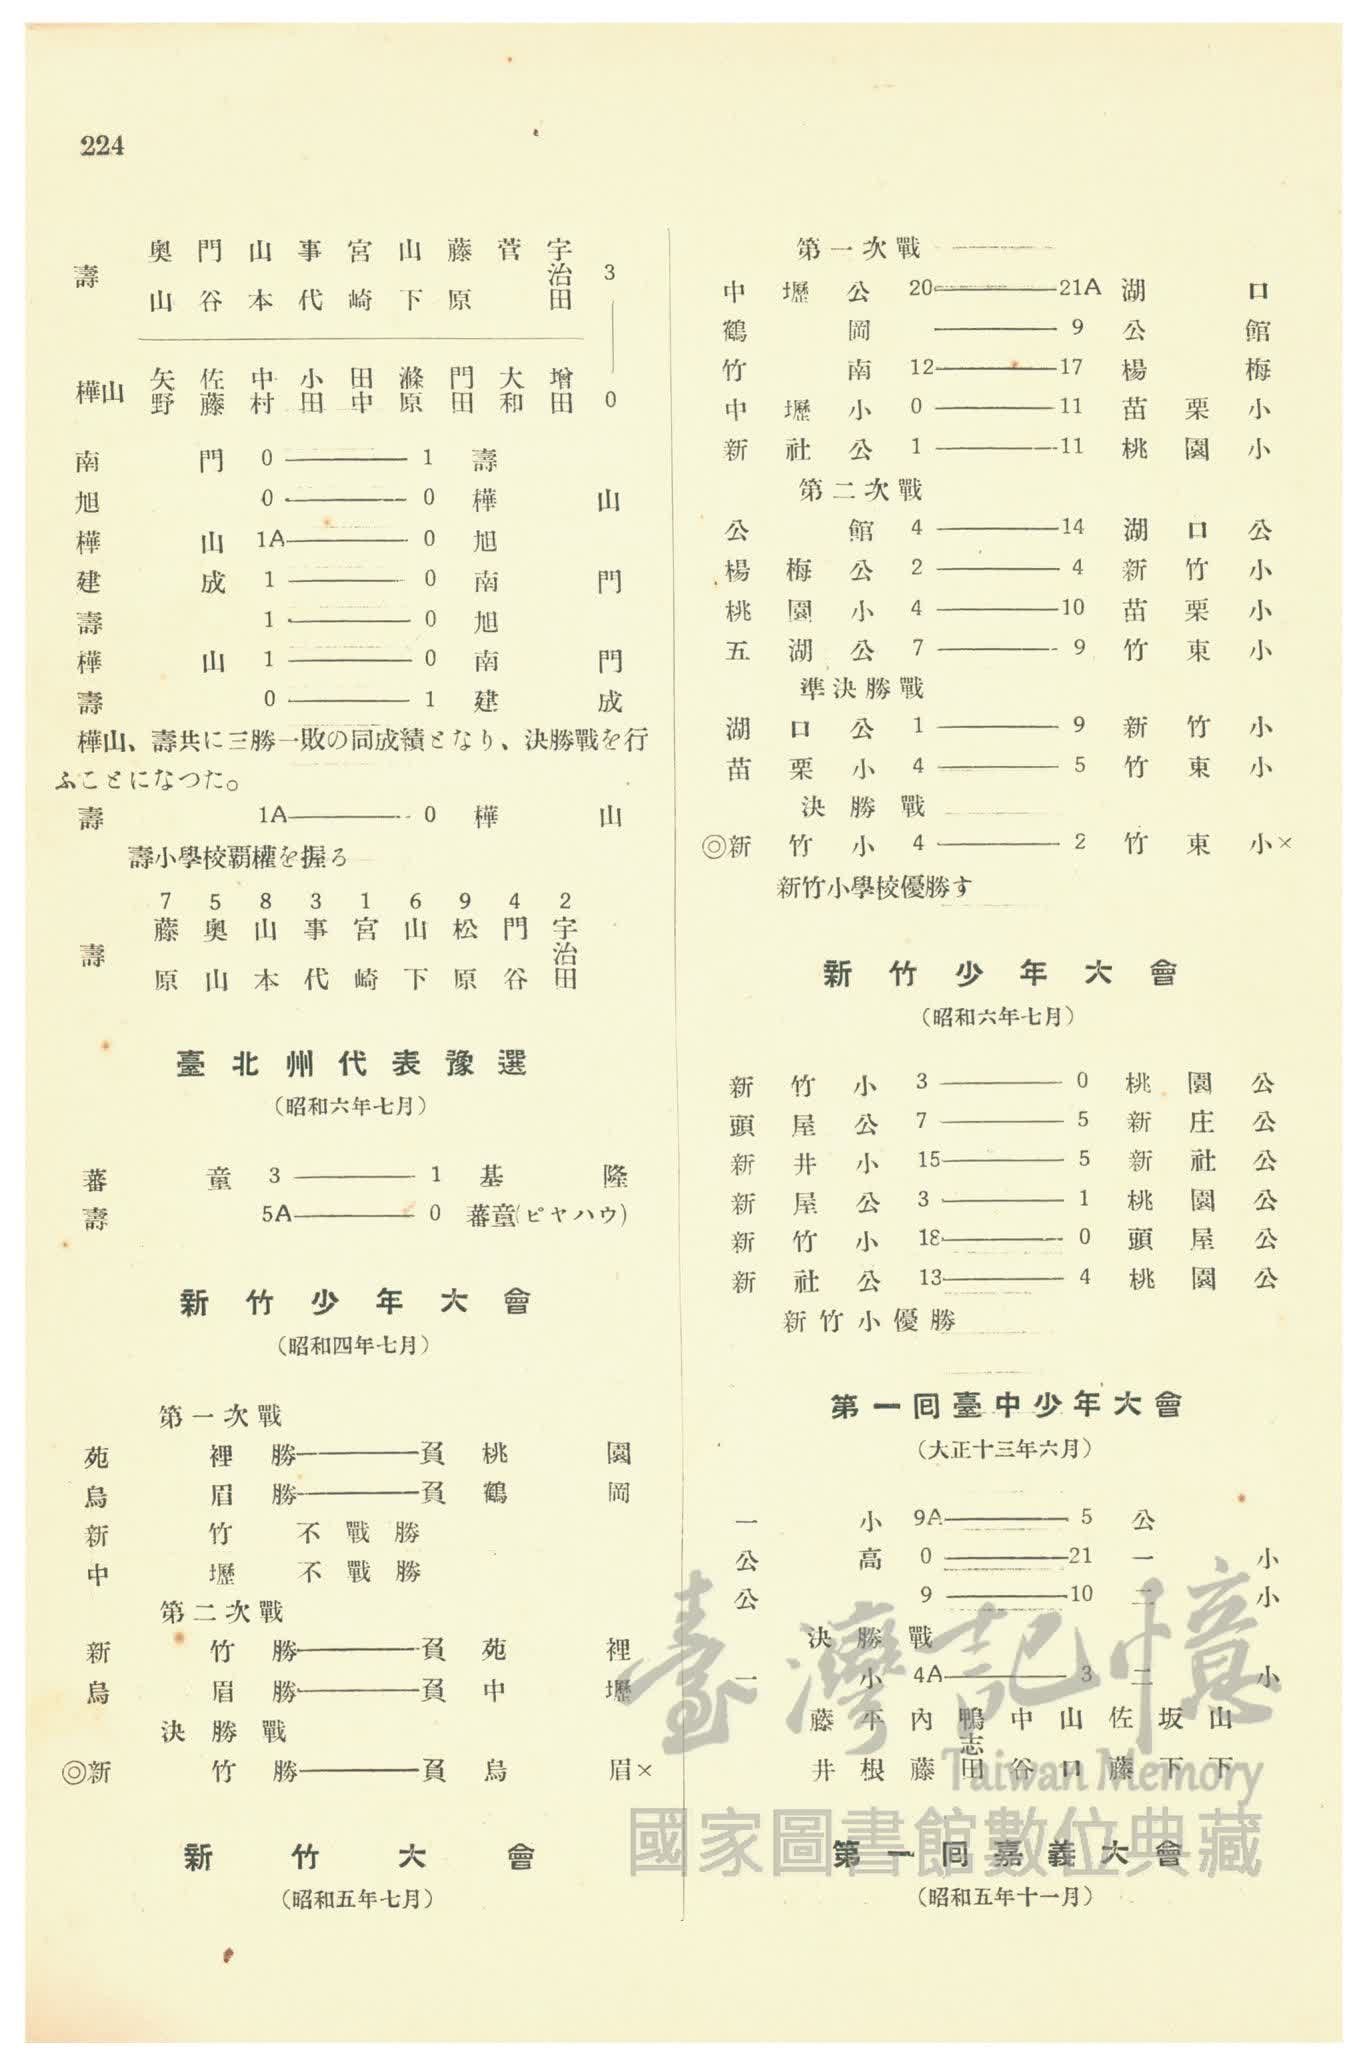 224
壽 奧山 門谷 山本 事代 宮崎 山下 藤原 菅 宇治田 3
樺山 矢野 佐藤 中村 小田 田中 滌原 門田 大和 增田 0
南門 0 ——— 1 壽
旭 0 ——— 0 樺山
樺山 1A ——— 0 旭
建成 1 ——— 0 南門
壽 1 ——— 0 旭
樺山 1 ——— 0 南門
壽 0 ——— 1 建成
樺山、壽共に三勝一敗の同成績となり、決勝戰を行
ふことになつた。
壽 1A ——— 0 樺山
壽小學校覇權を握る
7 5 8 3 1 6 9 4 2
壽 藤原 奧山 山本 事代 宮崎 山下 松原 門谷 宇治田
臺北州代表豫選
(昭和六年七月)
蕃童 3 ——— 1 基隆
壽 5A ——— 0 蕃童(ピヤハウ)
新竹少年大會
(昭和四年七月)
第一次戰
苑裡 勝 ——— 負 桃園
烏眉 勝 ——— 負 鶴岡
新竹 不戰勝
中壢 不戰勝
第二次戰
新竹 勝 ——— 負 苑裡
烏眉 勝 ——— 負 中壢
決勝戰
◎新竹 勝 ——— 負 烏眉×
新竹大會
(昭和五年七月)
第一次戰
中壢公 20 ——— 21A 湖口
鶴岡 ——— 9 公館
竹南 12 ——— 17 楊梅
中壢小 0 ——— 11 苗栗小
新社公 1 ——— 11 桃園小
第二次戰
公館 4 ——— 14 湖口公
楊梅公 2 ——— 4 新竹小
桃園小 4 ——— 10 苗栗小
五湖公 7 ——— 9 竹東小
準決勝戰
湖口公 1 ——— 9 新竹小
苗栗小 4 ——— 5 竹東小
決勝戰
◎新竹小 4 ——— 2 竹東小×
新竹小學校優勝す
新竹少年大會
(昭和六年七月)
新竹小 3 ——— 0 桃園公
頭屋公 7 ——— 5 新庄公
新井小 15 ——— 5 新社公
新屋公 3 ——— 1 桃園公
新竹小 18 ——— 0 頭屋公
新社公 13 ——— 4 桃園公
新竹小優勝
第一回臺中少年大會
(大正十三年六月)
一小 9A ——— 5 公
公高 0 ——— 21 一小
公 9 ——— 10 二小
決勝戰
一小 4A ——— 3 二小
藤井 平根 內藤 鴨志田 中谷 山口 佐藤 坂下 山下
第一回嘉義大會
(昭和五年十一月)
臺灣記憶
Taiwan Memory
國家圖書館數位典藏